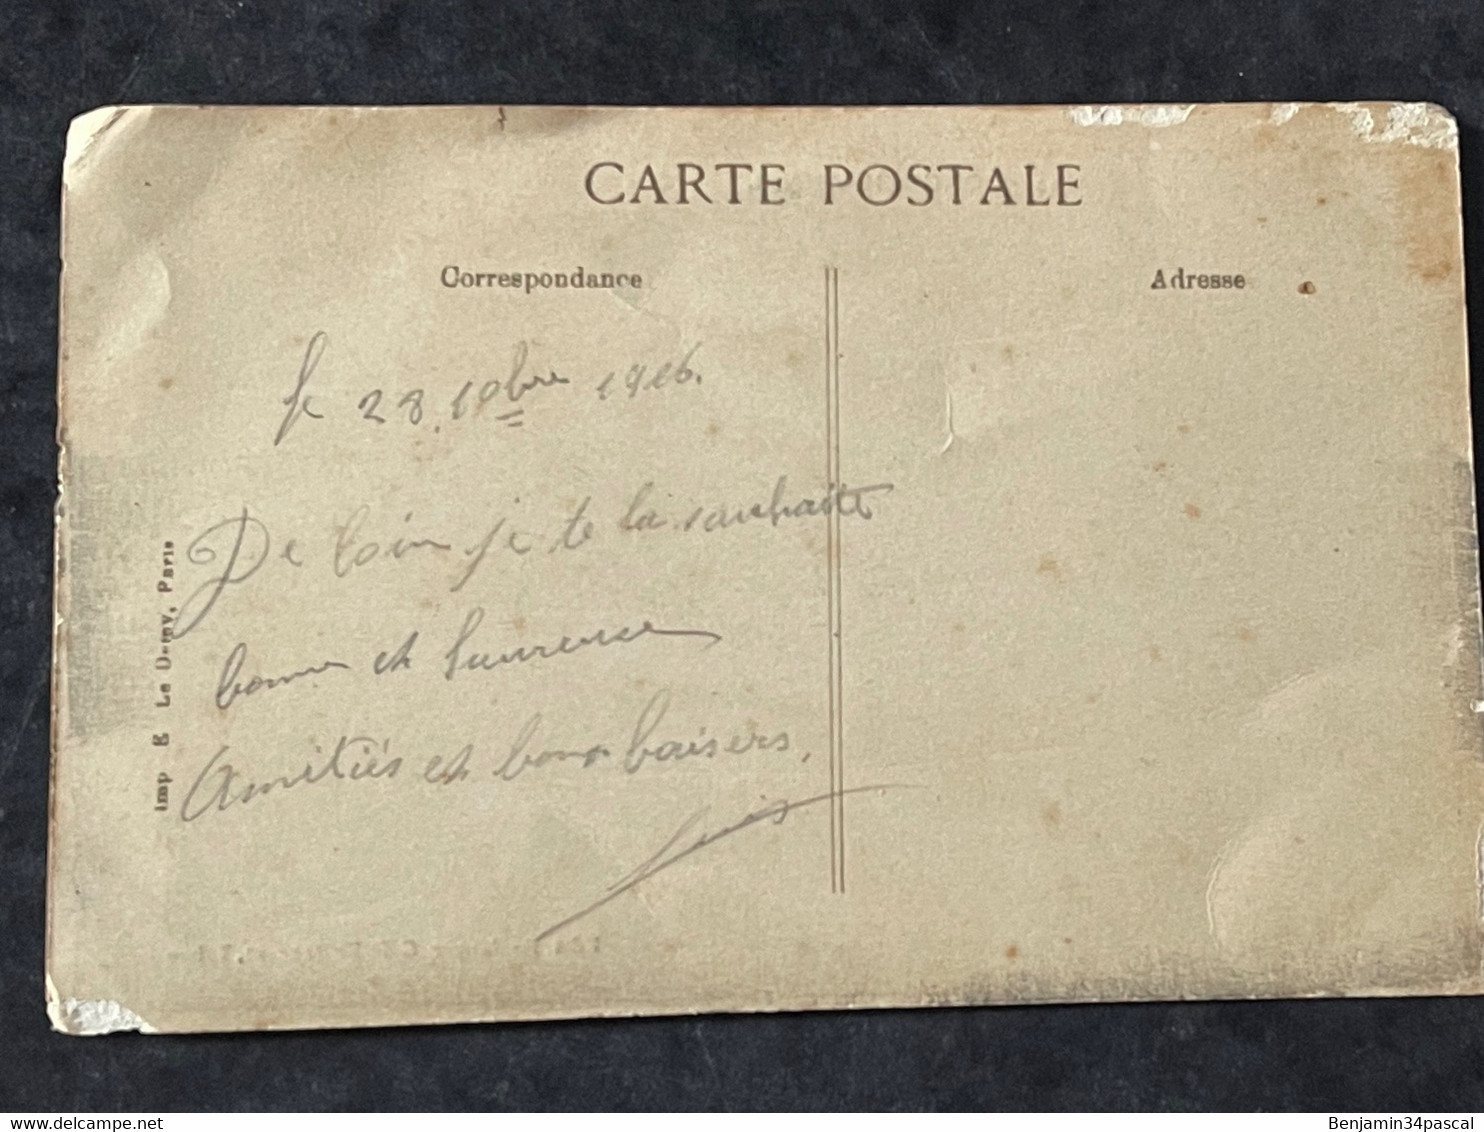 CARTE POSTALE
Correspondance
Adresse
le 28. 10bre 1916.
De loin je te la souhaite
bonne et heureuse
Amitiés et bons baisers.
Louis
Imp E Le Deley, Paris
Benjamin34pascal